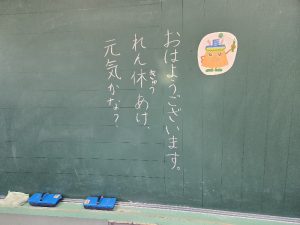 おはようございます。
れん休あけ、
きゅう
元気かな？